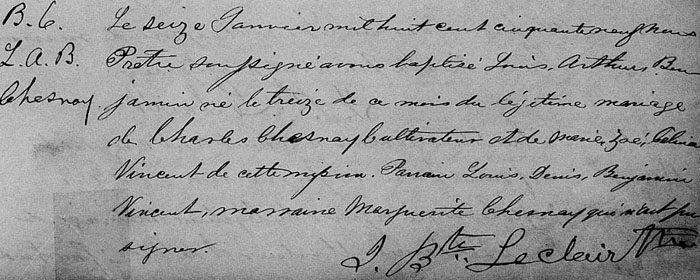 B. 6. Le seize Janvier mil huit cent cinquante neuf nous
L. A. B. Prêtre soussigné avons baptisé Louis, Arthur, Ben
Chesnay jamin né le treize de ce mois du légitime mariage
de Charles Chesnay Cultivateur et de Marie, Zoé, Celina
Vincent de cette mission. Parrain Louis, Denis, Benjamin
Vincent, marraine Marguerite Chesnay qui n'ont pu
signer.
J. Bte Leclair Ptre